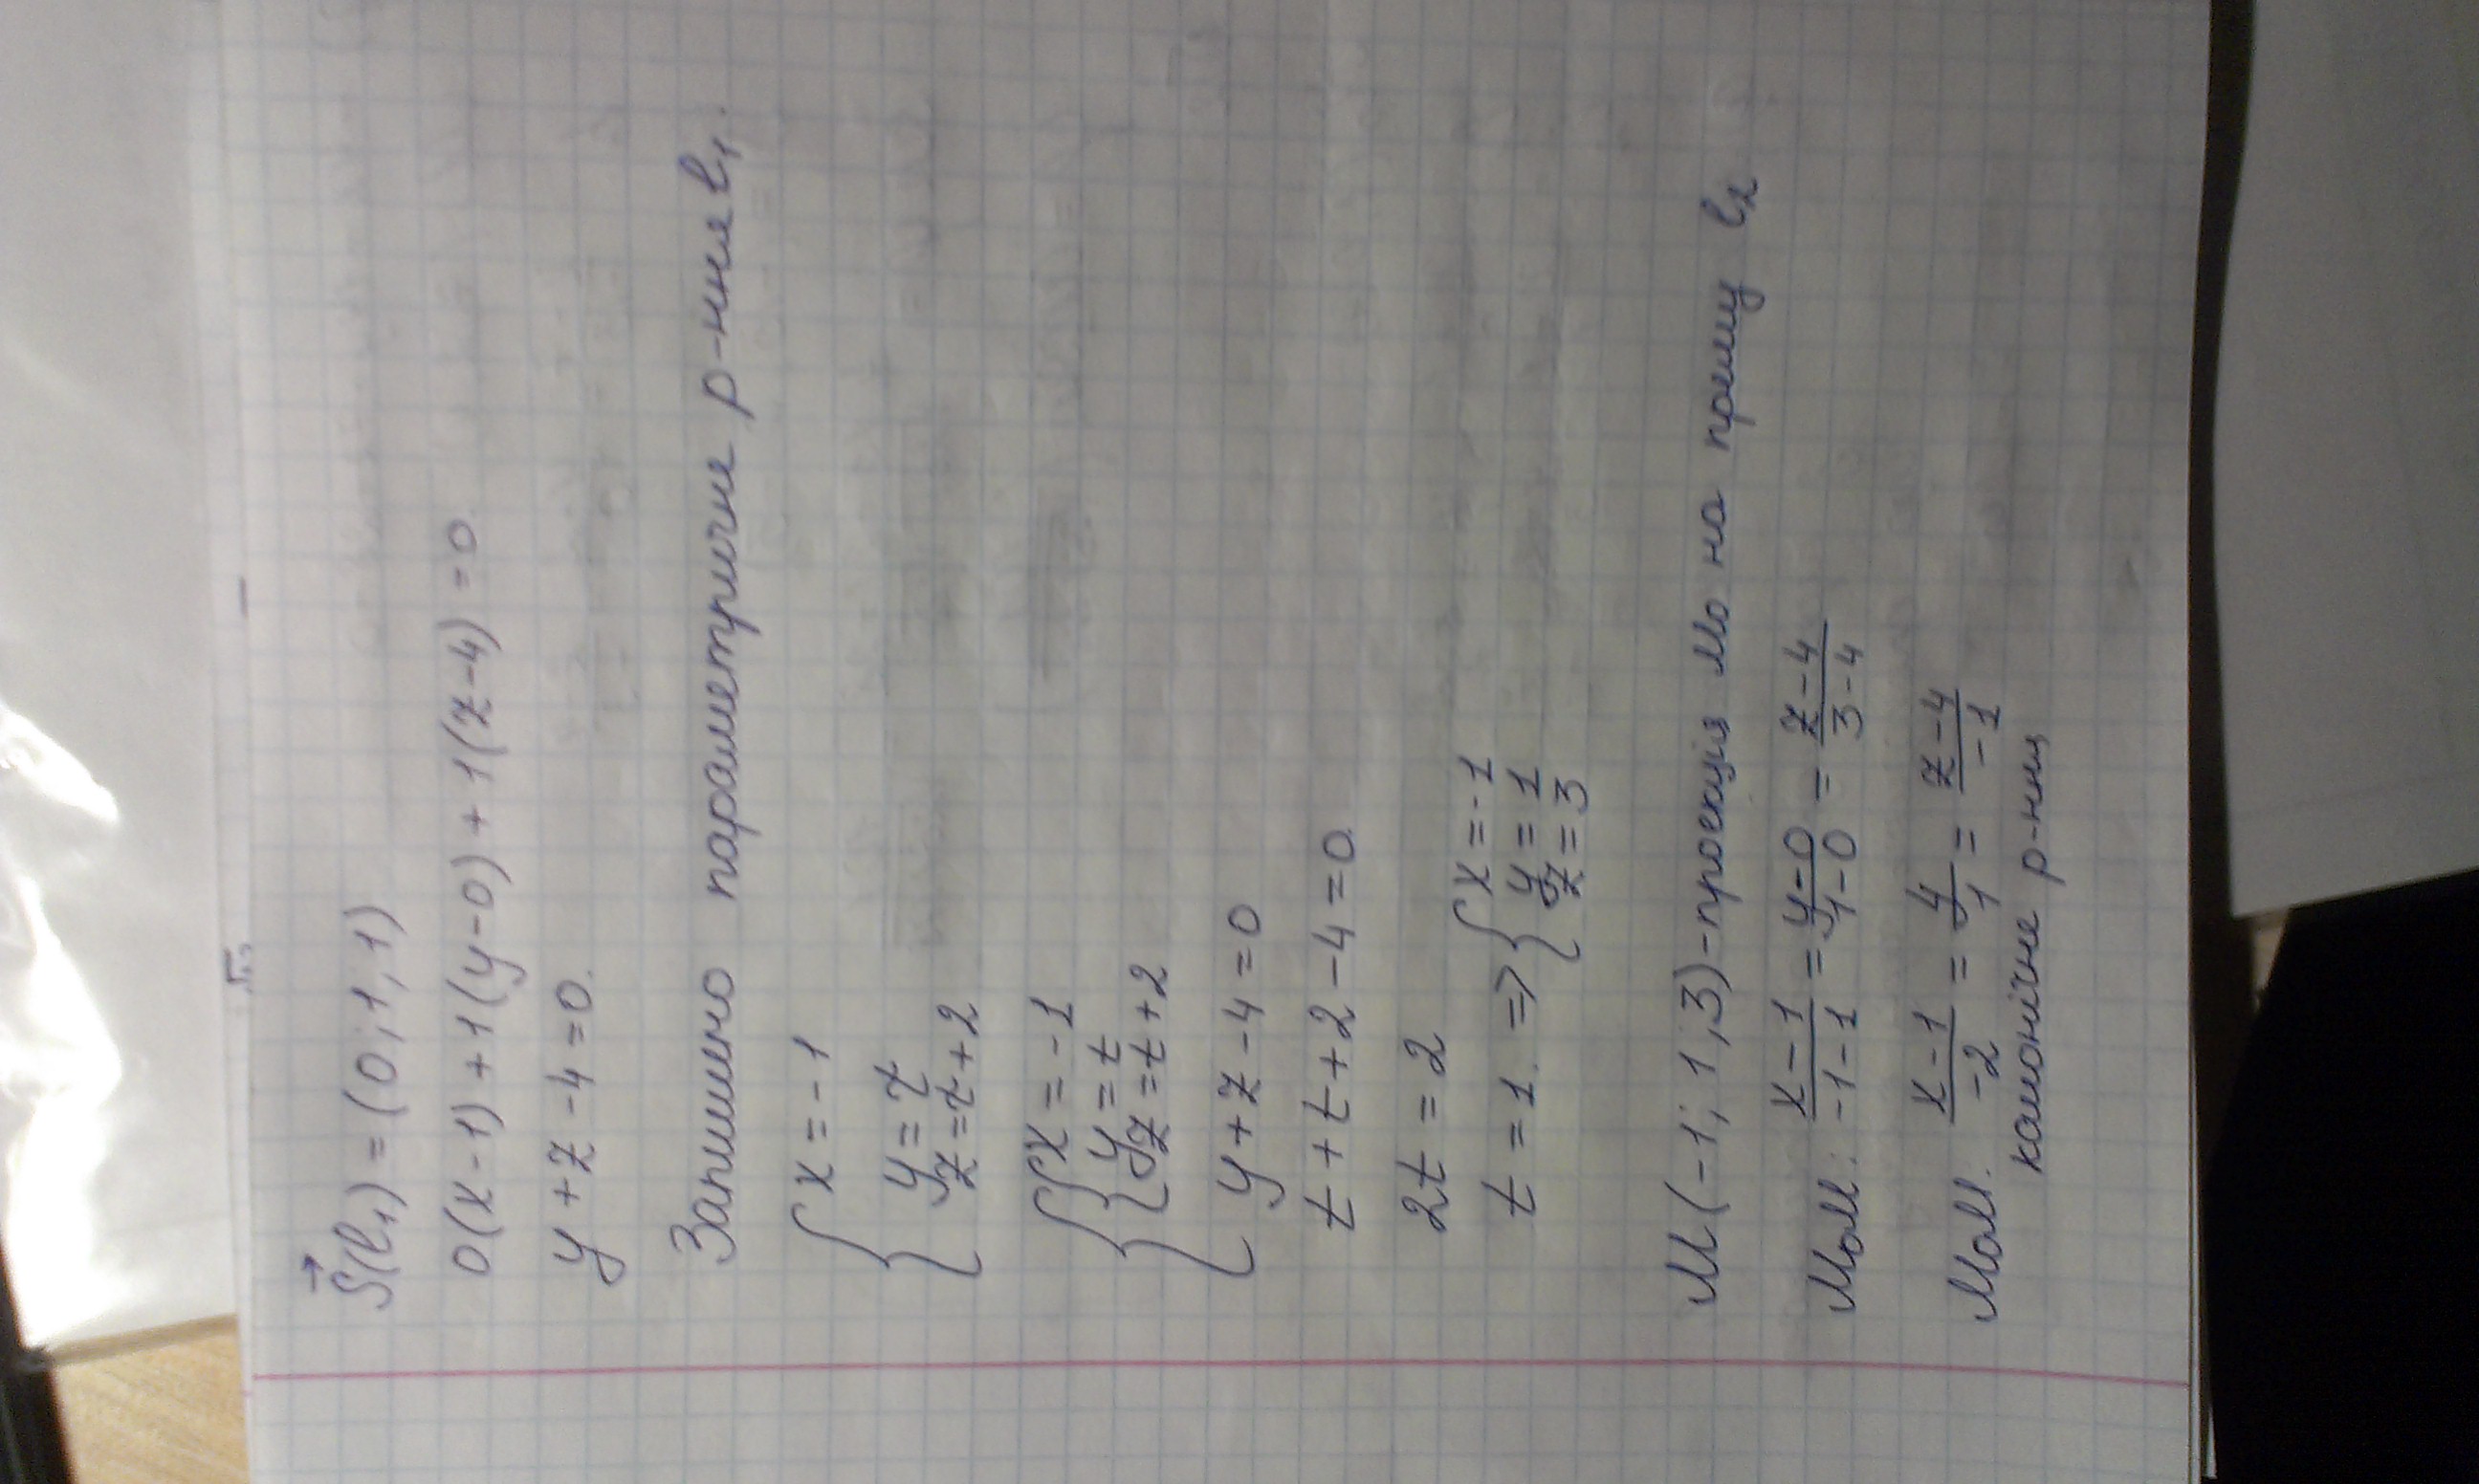 S⃗(l₁) = (0; 1; 1)
0(x-1) + 1(y-0) + 1(z-4) = 0.
y + z - 4 = 0.
Запишемо параметричне р-ння l₁.
{ x = -1
y = t
z = t + 2
{ { x = -1
y = t
z = t + 2
y + z - 4 = 0
t + t + 2 - 4 = 0.
2t = 2
t = 1. => { x = -1
y = 1
z = 3
M(-1; 1; 3) - проекція M₀ на пряму l₁
M₀M: (x-1)/(-1-1) = (y-0)/(1-0) = (z-4)/(3-4)
M₀M. (x-1)/(-2) = y/1 = (z-4)/(-1)
канонічне р-ння